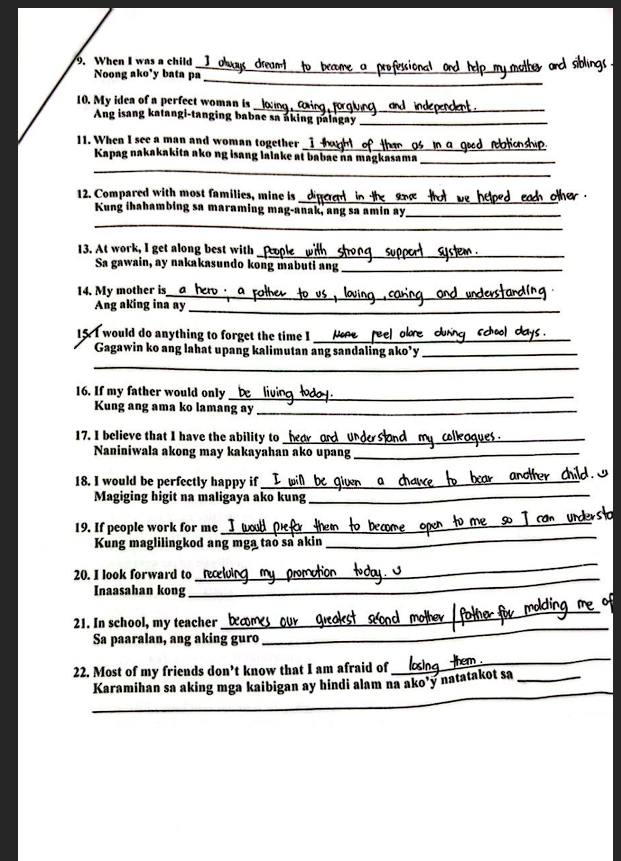 9. When I was a child I always dreamt to become a professional and help my mother and siblings.
Noong ako'y bata pa
10. My idea of a perfect woman is loving, caring, forgiving and independent.
Ang isang katangi-tanging babae sa aking palagay
11. When I see a man and woman together I thought of them as in a good relationship.
Kapag nakakakita ako ng isang lalake at babae na magkasama
12. Compared with most families, mine is different in the sense that we helped each other.
Kung ihahambing sa maraming mag-anak, ang sa amin ay
13. At work, I get along best with people with strong support system.
Sa gawain, ay nakakasundo kong mabuti ang
14. My mother is a hero, a father to us, loving, caring and understanding.
Ang aking ina ay
15. I would do anything to forget the time I feel alone during school days.
Gagawin ko ang lahat upang kalimutan ang sandaling ako'y
16. If my father would only be living today.
Kung ang ama ko lamang ay
17. I believe that I have the ability to hear and understand my colleagues.
Naniniwala akong may kakayahan ako upang
18. I would be perfectly happy if I will be given a chance to bear another child.
Magiging higit na maligaya ako kung
19. If people work for me I would prefer them to become open to me so I can understa
Kung maglilingkod ang mga tao sa akin
20. I look forward to receiving my promotion today.
Inaasahan kong
21. In school, my teacher becomes our greatest second mother / father for molding me of
Sa paaralan, ang aking guro
22. Most of my friends don't know that I am afraid of losing them.
Karamihan sa aking mga kaibigan ay hindi alam na ako'y natatakot sa